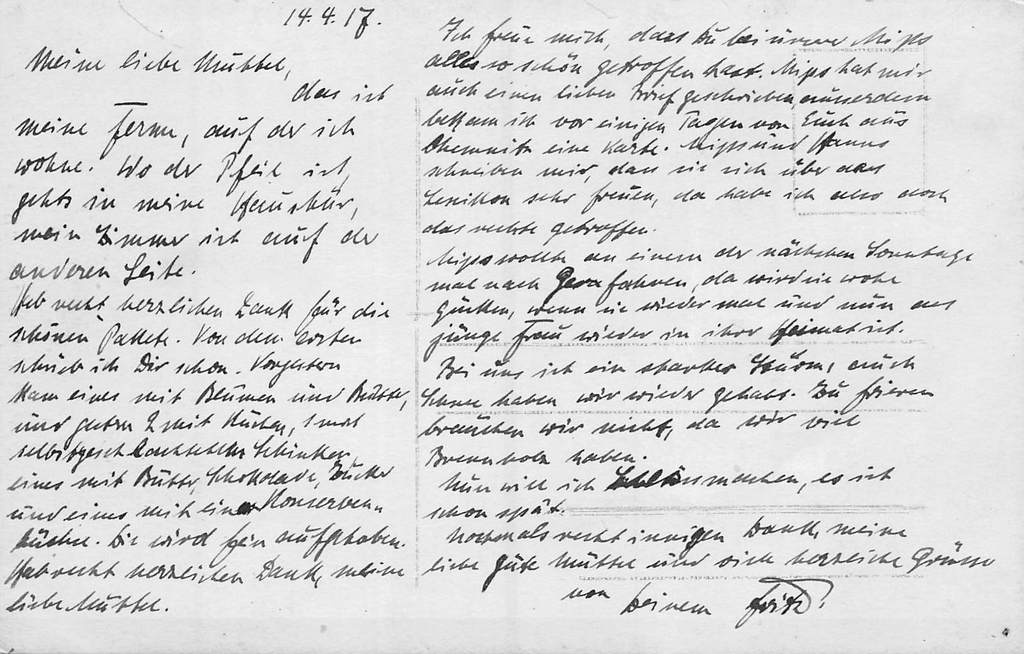 14.4.17.
Meine liebe Muttel,
das ist
meine Ferme, auf der ich
wohne. Wo der Pfeil ist,
gehts in meine Haustür,
mein Zimmer ist auf der
anderen Seite.
Hab recht herzlichen Dank für die
schönen Pakete. Von dem ersten
schrieb ich Dir schon. Vorgestern
kam eines mit Blumen und Butter,
und gestern 2 mit Kuchen, 1 mal
selbstgeschlachteten Schinken,
eines mit Butter, Schokolade, Zucker
und eines mit einer Konserven-
büchse. Die wird fein aufgehoben.
Hab recht herzlichen Dank, meine
liebe Muttel.
Ich freue mich, dass Du bei unsrer Mips
alles so schön getroffen hast. Mips hat mir
auch einen lieben Brief geschrieben ausserdem
bekam ich vor einigen Tagen von Euch aus
Chemnitz eine Karte. Mips und Hanns
schreiben mir, dass sie sich über das
Lexikon sehr freuen, da habe ich also doch
das rechte getroffen.
Mips wollte an einem der nächsten Sonntage
mal nach Gera fahren, da wird sie wohl
gucken, wenn sie wieder mal und nun als
junge Frau wieder in ihrer Heimat ist.
Bei uns ist ein starker Sturm, auch
Schnee haben wir wieder gehabt. Zu frieren
brauchen wir nicht, da wir viel
Brennholz haben.
Nun will ich Schluss machen, es ist
schon spät.
Nochmals recht innigen Dank, meine
liebe gute Muttel und viele herzliche Grüsse
von Deinem Fritz.